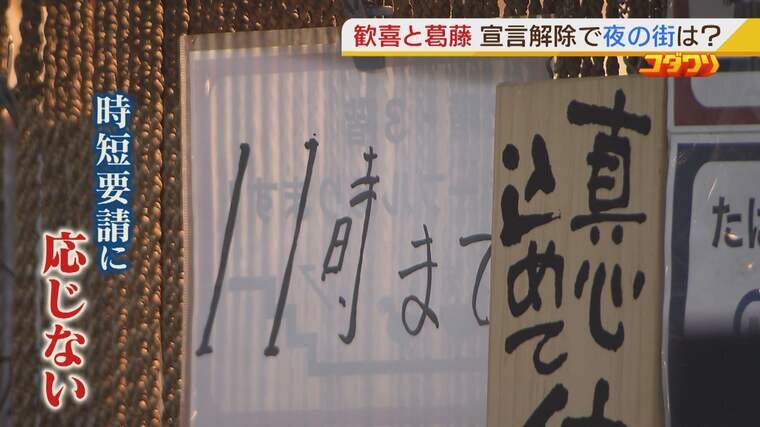 歓喜と葛藤 宣言解除で夜の街は?
コダワリ
時短要請に
応じない
11時まで
真心
込めて
たば
3階
ります